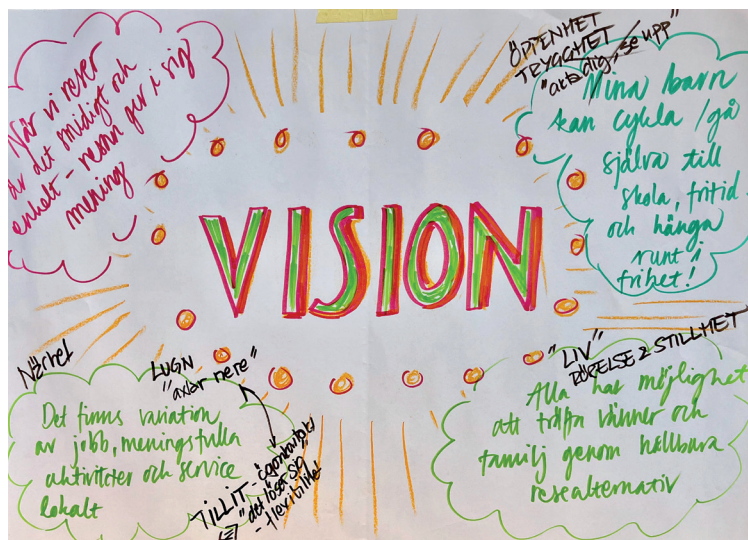 När vi reser
är det smidigt och
enkelt - resan ger i sig
mening
ÖPPENHET
TRYGGHET
"akta dig, se upp"
Mina barn
kan cykla / gå
själva till
skola, fritid
och hänga
runt i
frihet!
VISION
Närhet
LUGN
"axlar nere"
Det finns variation
av jobb, meningsfulla
aktiviteter och service
lokalt
TILLIT - ögonkontakt
"det löser sig"
- flexibilitet
"LIV"
RÖRELSE & STILLHET
Alla har möjlighet
att träffa vänner och
familj genom hållbara
resealternativ